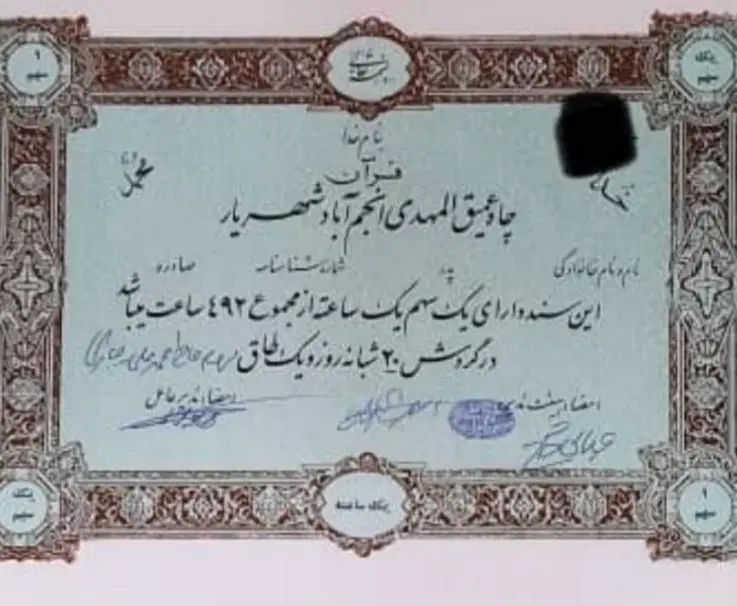 ۱
سهم
یک
سهم
بنام خدا
قرآن
محمد
خدا
چاه عمیق المهدی انجم آباد شهریار
نام و نام خانوادگی پدر شماره شناسنامه صادره
این سند دارای یک سهم یک ساعته از مجموع ٤٩٢ ساعت میباشد
در گردش ۲۰ شبانه روز و یک طاق
امضاء هیئت مدیره امضاء مدیر عامل
یک
سهم
یک ساعته
۱
سهم